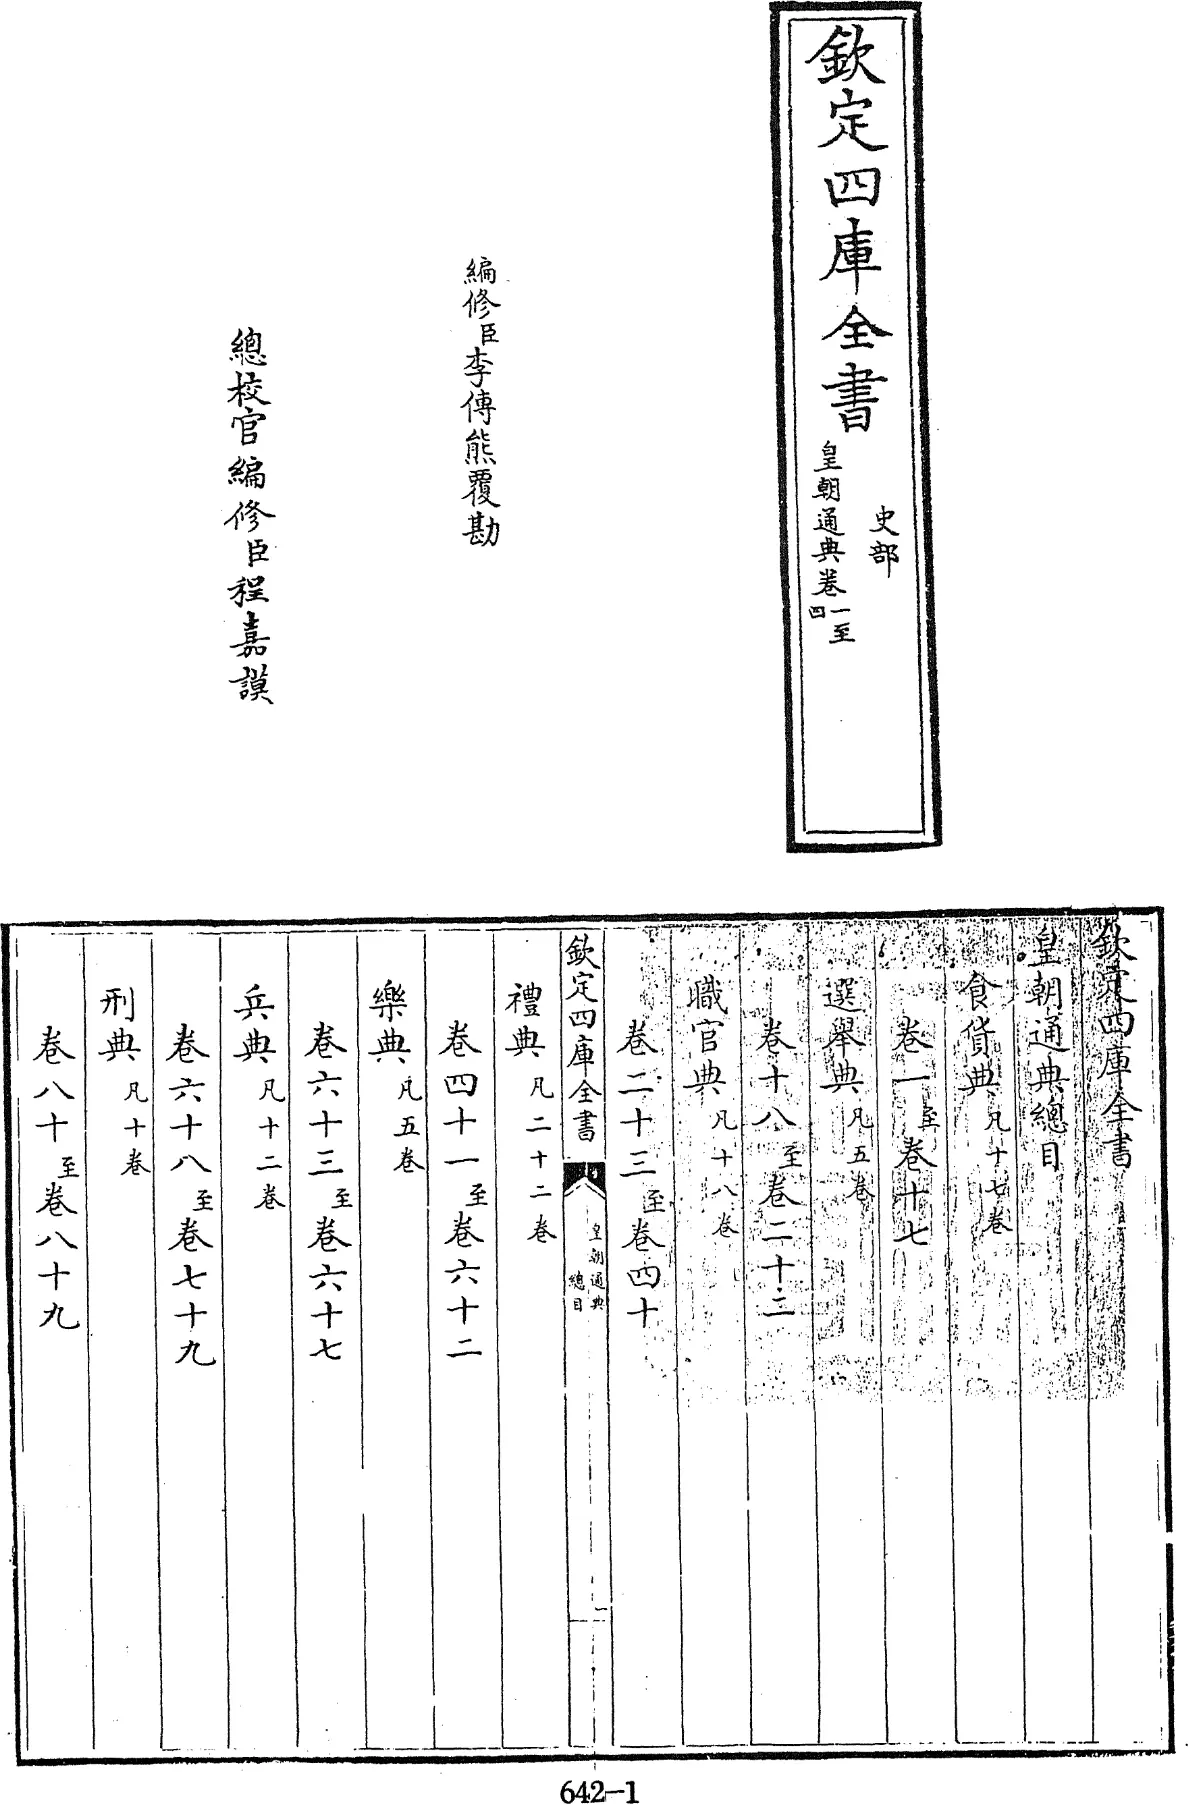 欽定四庫全書
史部
皇朝通典卷一至四
編修臣李傳熊覆勘
總校官編修臣程嘉謨
欽定四庫全書
皇朝通典總目
食貨典凡十七卷
卷一至卷十七
選舉典凡五卷
卷十八至卷二十二
職官典凡十八卷
卷二十三至卷四十
欽定四庫全書
皇朝通典
總目
禮典凡二十二卷
卷四十一至卷六十二
樂典凡五卷
卷六十三至卷六十七
兵典凡十二卷
卷六十八至卷七十九
刑典凡十卷
卷八十至卷八十九
642-1